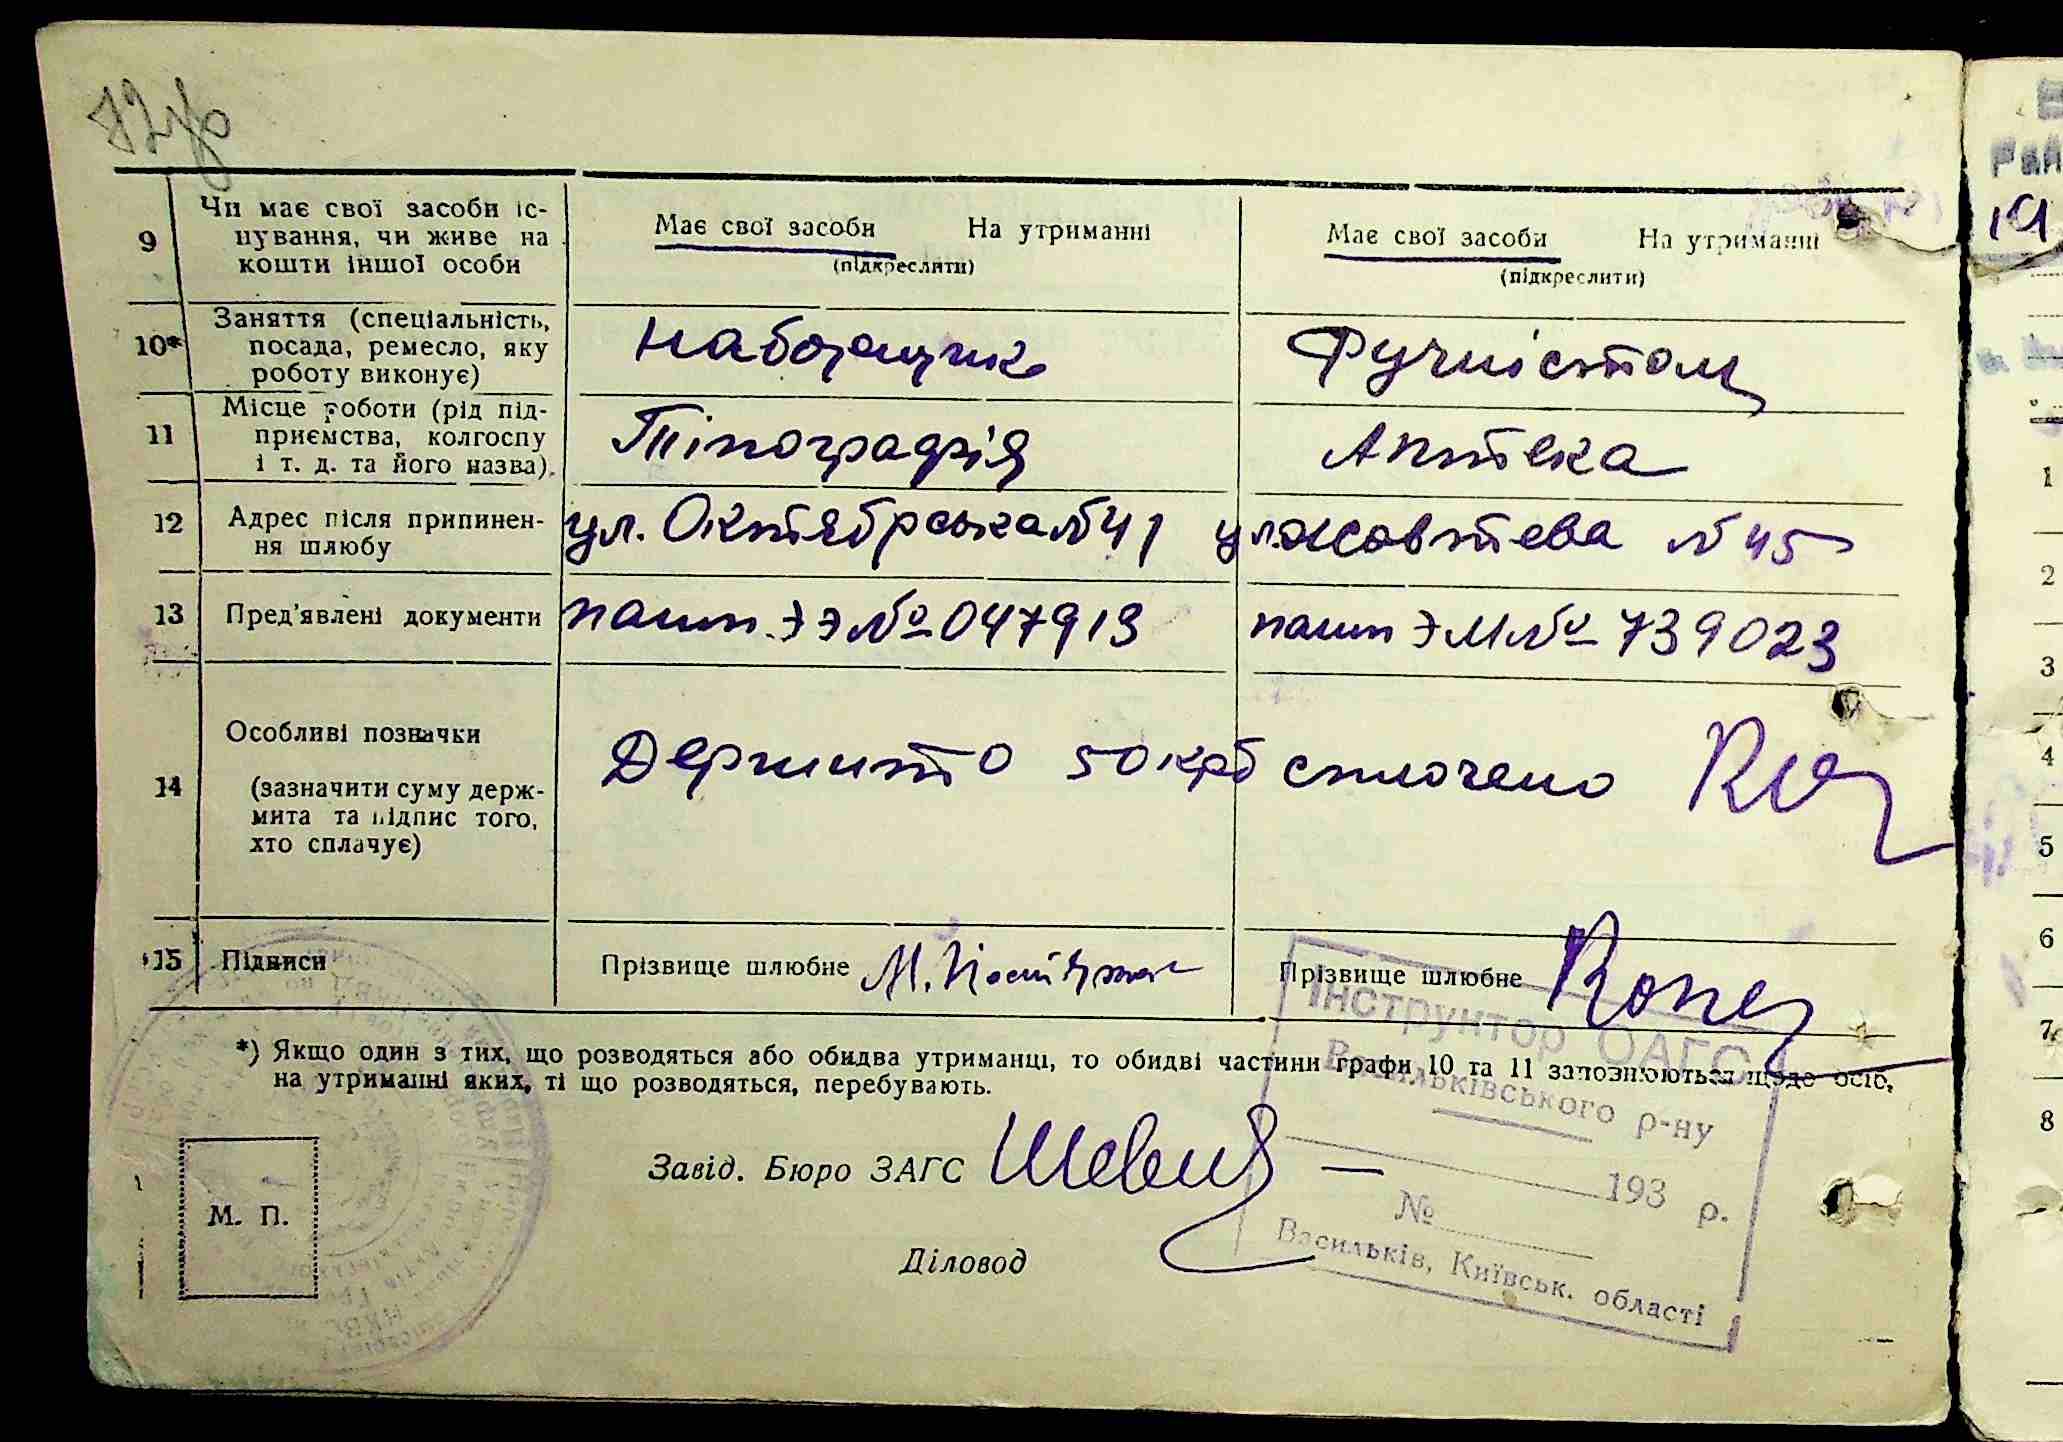 9 Чи має свої засоби іс-
нування, чи живе на
кошти іншої особи
Має свої засоби На утриманні
(підкреслити)
Має свої засоби На утриманні
(підкреслити)
10* Заняття (спеціальність,
посада, ремесло, яку
роботу виконує)
Наборщик
11 Місце роботи (рід під-
приємства, колгоспу
і т. д. та його назва).
Тіпографія
Аптека
12 Адрес після припинен-
ня шлюбу
ул. Октябрська №41
ул Жовтева №45
13 Пред'явлені документи
пашп. ЭЭ №047913
пашп ЭМ № 739023
14 Особливі позначки
(зазначити суму держ-
мита та підпис того,
хто сплачує)
Держмито 50 крб сплочено
15 Підписи
Прізвище шлюбне М.
Прізвище шлюбне
*) Якщо один з тих, що розводяться або обидва утриманці, то обидві частини графи 10 та 11 заповнюються щодо осіб,
на утриманні яких, ті що розводяться, перебувають.
Завід. Бюро ЗАГС
М. П.
Діловод
Інструктор ОАГС
Васильківського р-ну
193 р.
№
Васильків, Київськ. області
19
1
2
3
4
5
6
7
8